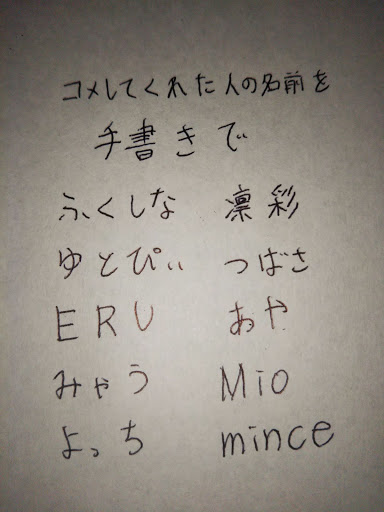 コメしてくれた人の名前を
手書きで
ふくしな 凛彩
ゆとぴぃ つばさ
ERU あや
みゃう Mio
よっち mince